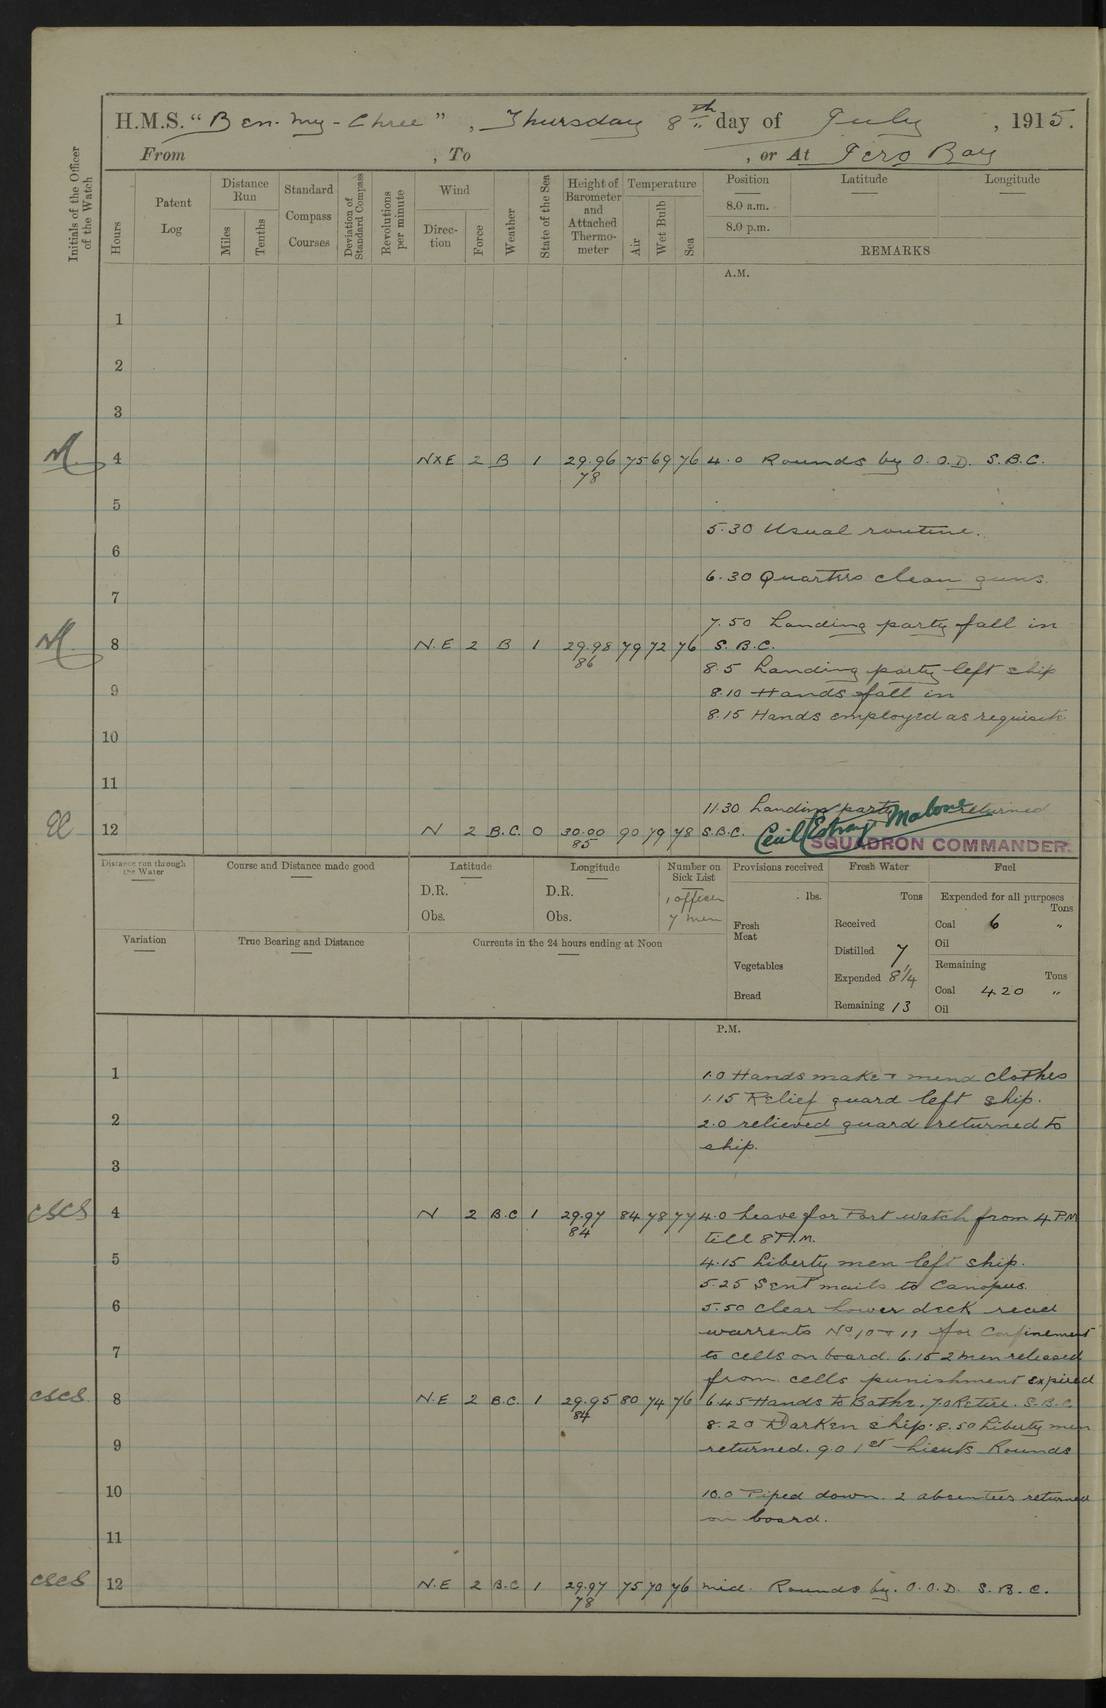 H.M.S. "Ben-my-Chree", Thursday 8th day of July, 1915.
From , To , or At Iero Bay
Initials of the Officer of the Watch
Hours
Patent Log
Distance Run
Miles
Tenths
Standard Compass Courses
Deviation of Standard Compass
Revolutions per minute
Wind
Direction
Force
Weather
State of the Sea
Height of Barometer and Attached Thermometer
Temperature
Air
Wet Bulb
Sea
Position
Latitude
Longitude
8.0 a.m.
8.0 p.m.
REMARKS
A.M.
1
2
3
4 NXE 2 B 1 29.96 75 69 76 4.0 Rounds by O.O.D. S.B.C.
78
5
5.30 Usual routine.
6
6.30 Quarters clean guns.
7
7.50 Landing party fall in
8 N.E 2 B 1 29.98 79 72 76 S.B.C.
86
8.5 Landing party left ship
9 8.10 Hands fall in
8.15 Hands employed as requisite
10
11
11.30 Landing party returned
12 N 2 B.C. 0 30.00 90 79 78 S.B.C. Cecil L'Estrange Malone
85
SQUADRON COMMANDER.
Distance run through the Water
Course and Distance made good
Latitude
D.R.
Obs.
Longitude
D.R.
Obs.
Number on Sick List
1 officer
7 men
Provisions received
lbs.
Fresh Meat
Vegetables
Bread
Fresh Water
Tons
Received
Distilled 7
Expended 8 1/4
Remaining 13
Fuel
Expended for all purposes
Tons
Coal 6 "
Oil
Remaining
Tons
Coal 420 "
Oil
Variation
True Bearing and Distance
Currents in the 24 hours ending at Noon
P.M.
1 1.0 Hands make & mend clothes
1.15 Relief guard left ship.
2 2.0 relieved guard returned to
ship.
3
CSCS 4 N 2 B.C 1 29.97 84 78 77 4.0 Leave for Port watch from 4 P.M
84 till 8 P.M.
5 4.15 Liberty men left ship.
5.25 Sent mails to Canopus.
6 5.50 Clear Lower deck read
warrents No 10 & 11 for Confinement
7 to cells on board. 6.15 2 men released
from cells punishment expired
CSCS 8 N.E 2 B.C. 1 29.95 80 74 76 6.45 Hands to Bathe. 7.0 Retire. S.B.C
84 8.20 Darken ship. 8.50 Liberty men
9 returned. 9.0 1st Lieuts Rounds
10 10.0 Piped down. 2 absentees returned
on board.
11
CSCS 12 N.E 2 B.C 1 29.97 75 70 76 mid. Rounds by. O.O.D. S.B.C.
78